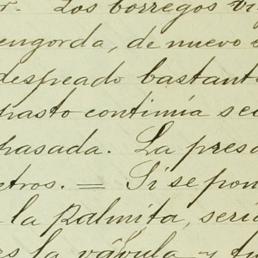 r. Los borregos vi
engorda, de nuevo e
despeado bastant
pasto continúa sec
pasada. La pres
etros. = Si se pon
la palmita, serí
es la válvula y tu